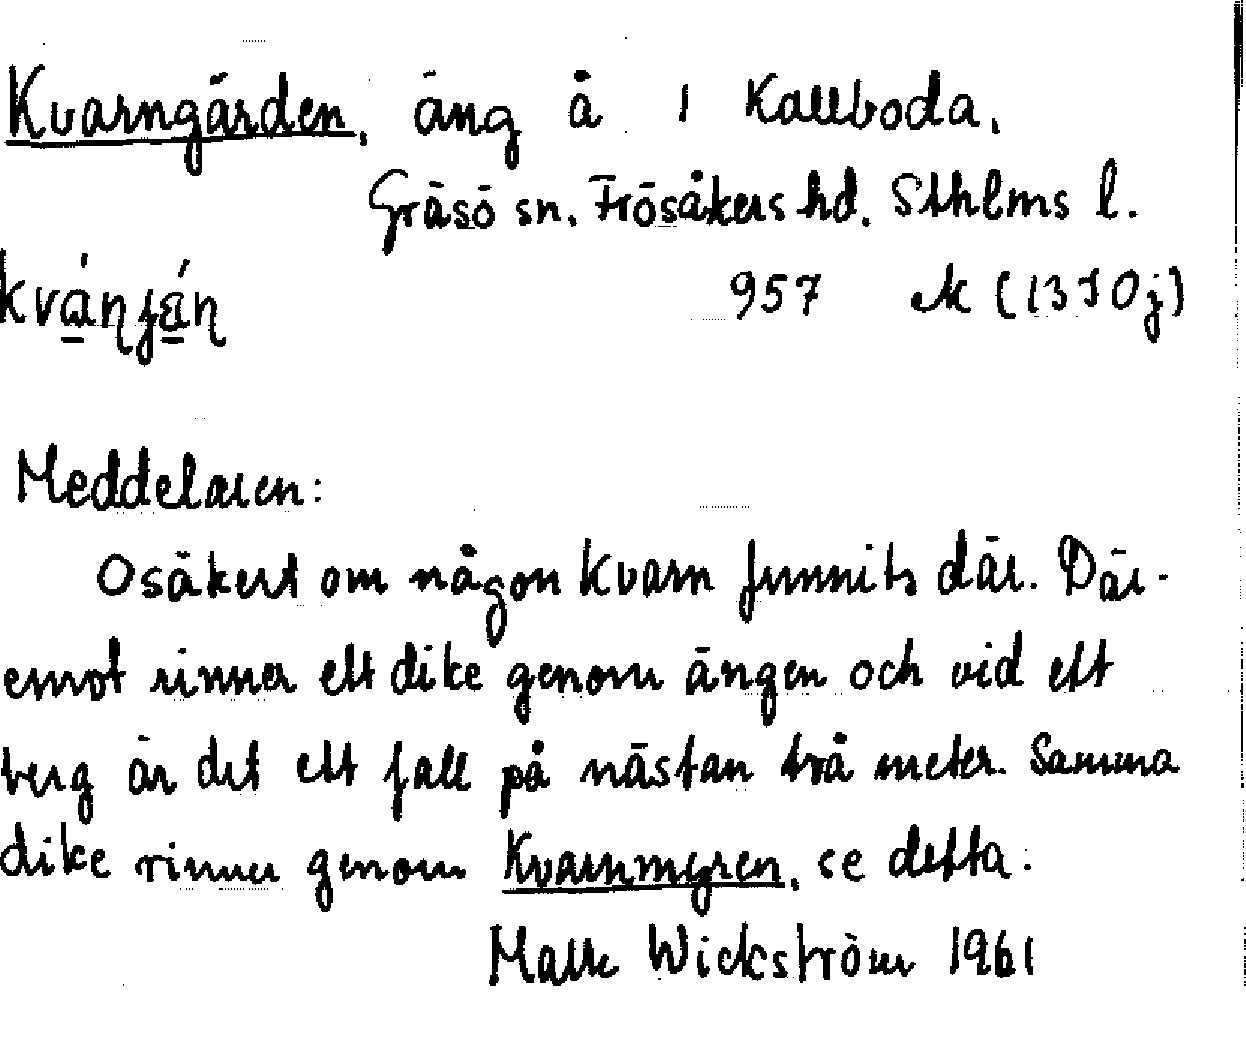 Kvarngärden, äng å 1 Kallboda,
Gräsö sn. Frösåkers hd. Sthlms l.
957 ek (13I0j)
Meddelaren:
Osäkert om någon kvarn funnits där. Där-
emot rinner ett dike genom ängen och vid ett
berg är det ett fall på nästan två meter. Samma
dike rinner genom Kvarnmyren, se detta.
Wickström 1961